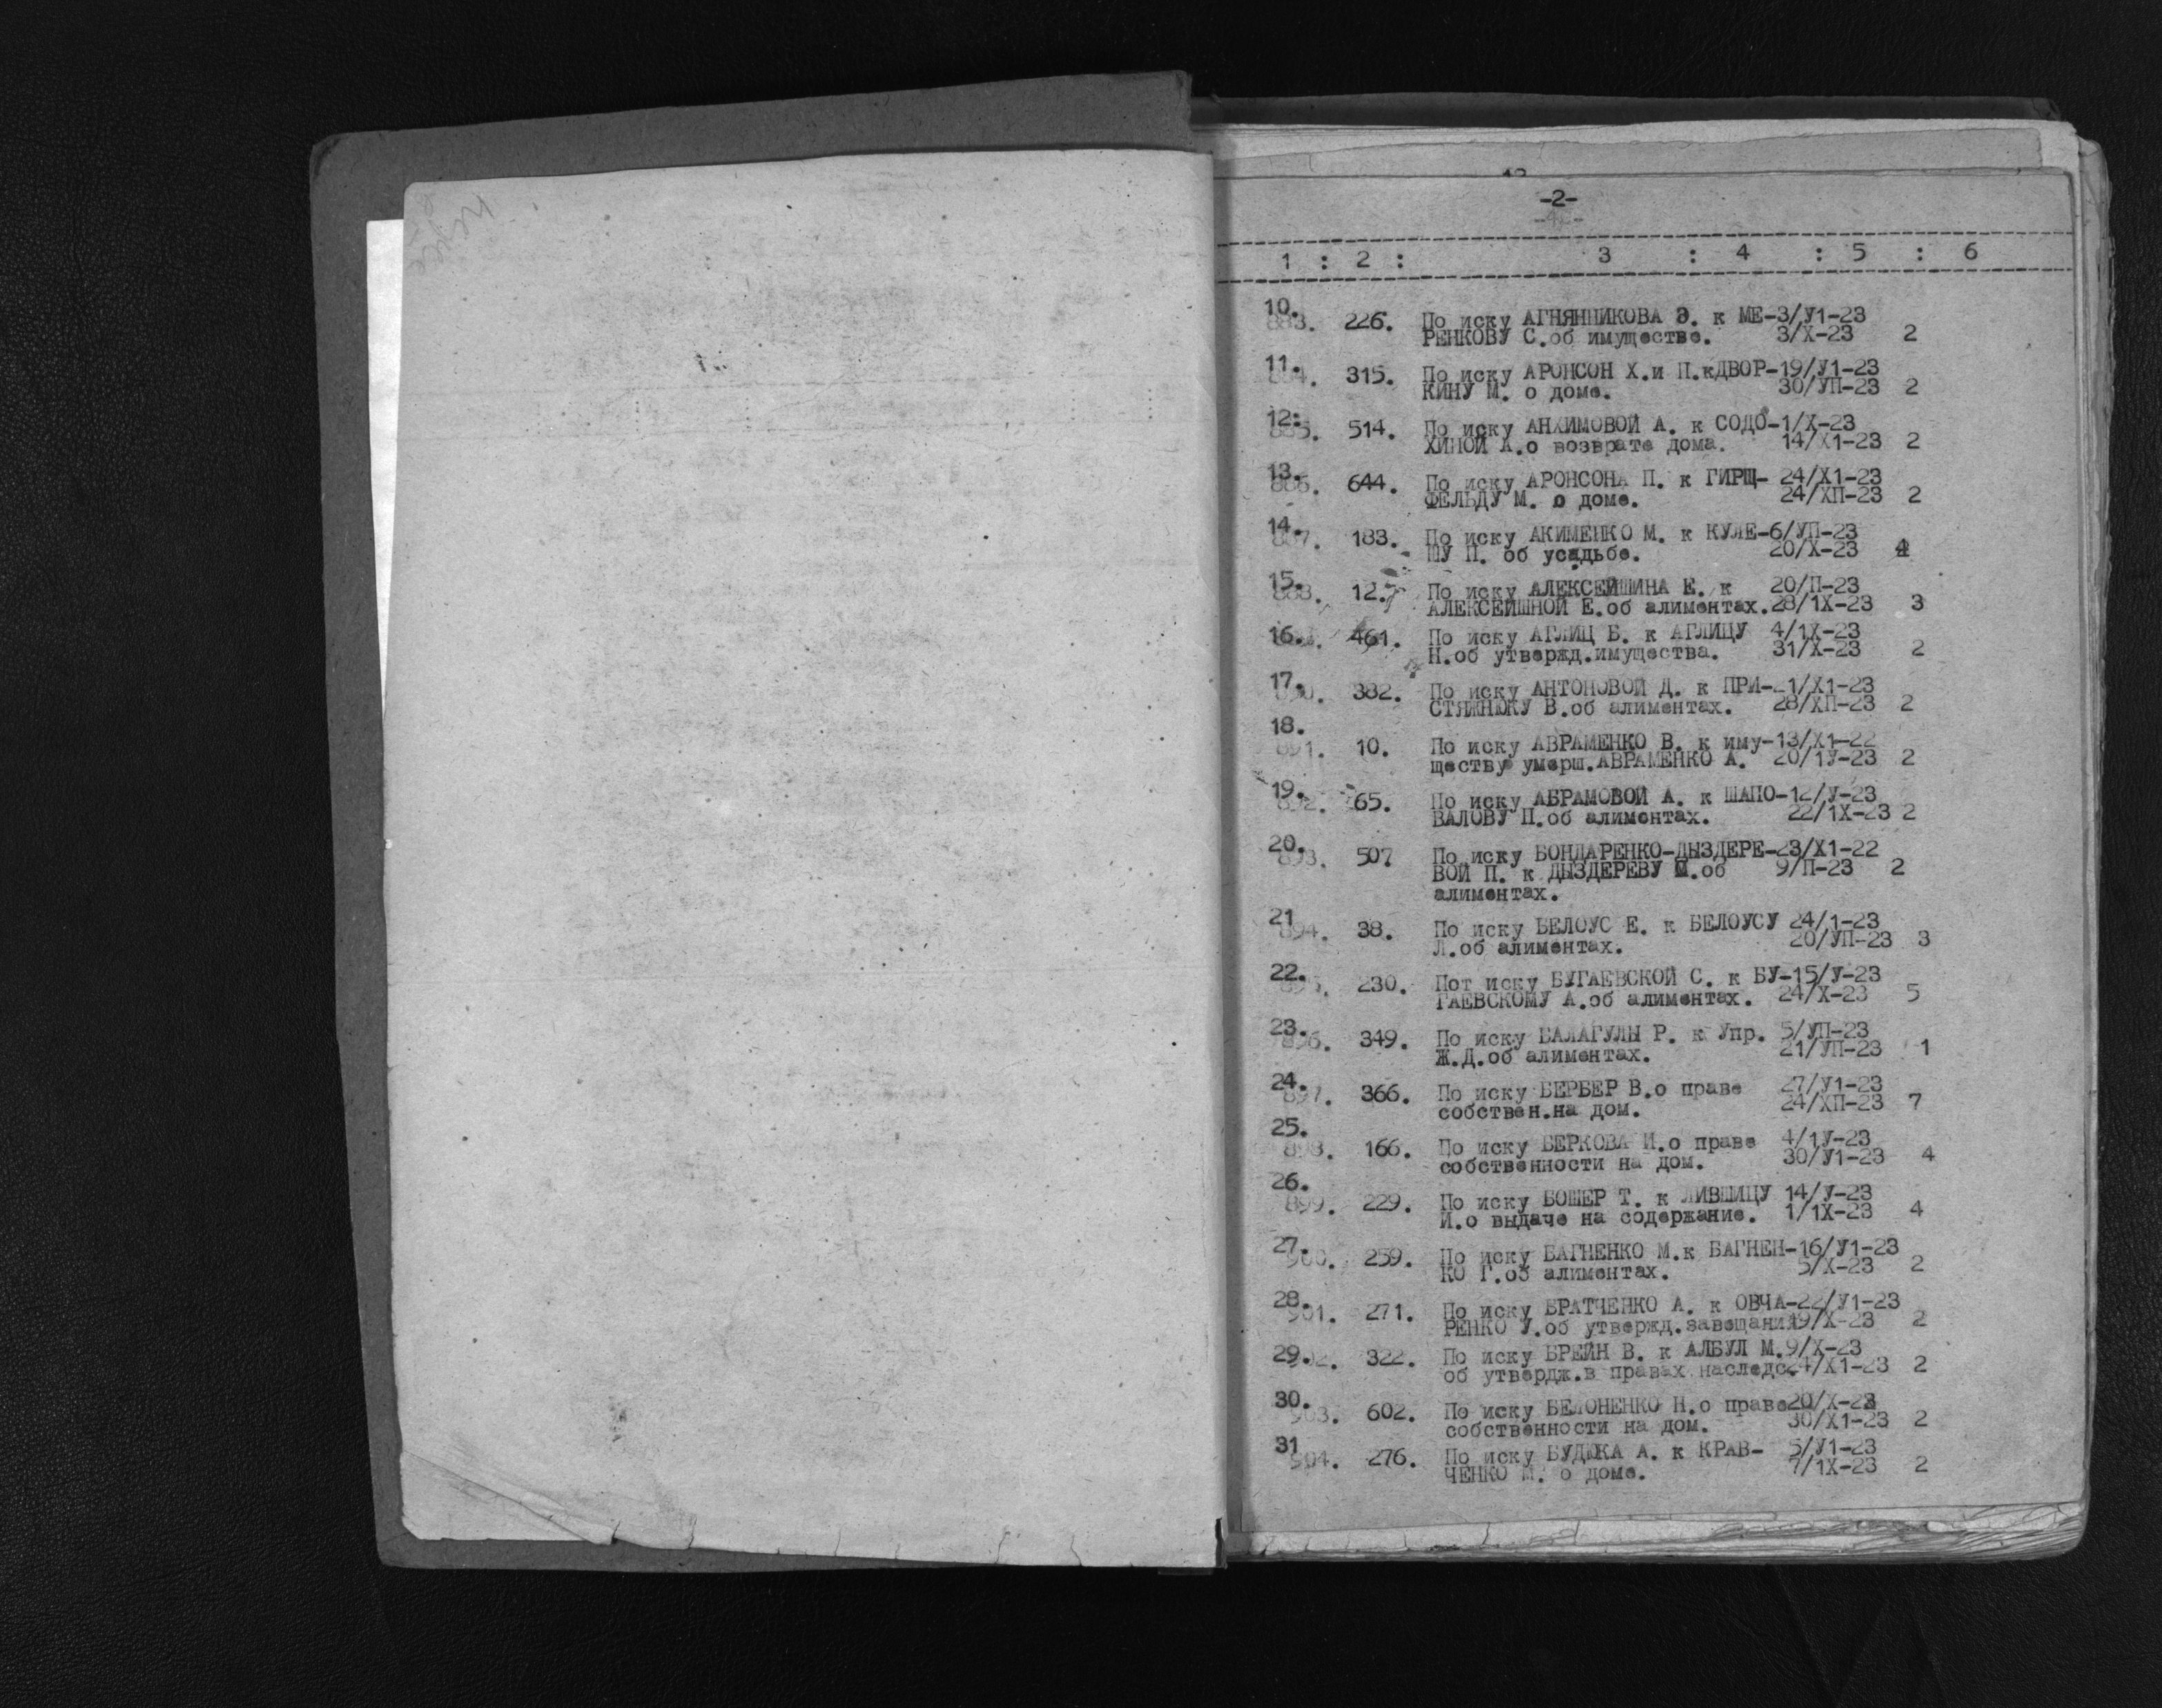 -2-
1 : 2 : 3 : 4 : 5 : 6
10.
883. 226. По иску АГНЯННИКОВА Э. к МЕ-3/У1-23
РЕНКОВУ С.об имуществе. 3/Х-23 2
11.
884. 315. По иску АРОНСОН Х.и П.кДВОР-19/У1-23
КИНУ М. о доме. 30/УП-23 2
12.
885. 514. По иску АНХИМОВОЙ А. к СОДО-1/Х-23
ХИНОЙ А.о возврате дома. 14/Х1-23 2
13.
886. 644. По иску АРОНСОНА П. к ГИРЩ- 24/Х1-23
ФЕЛЬДУ М. о доме. 24/ХП-23 2
14.
887. 183. По иску АКИМЕНКО М. к КУЛЕ-6/УП-23
ШУ П. об усадьбе. 20/Х-23 4
15.
888. 12. По иску АЛЕКСЕЙШИНА Е. к 20/П-23
АЛЕКСЕЙШНОЙ Е.об алиментах.28/1Х-23 3
16. 461. По иску АГЛИЦ Б. к АГЛИЦУ 4/1Х-23
Н.об утвержд.имущества. 31/Х-23 2
17.
890. 382. По иску АНТОНОВОЙ Д. к ПРИ-21/Х1-23
СТЯЖНЮКУ В.об алиментах. 28/ХП-23 2
18.
891. 10. По иску АВРАМЕНКО В. к иму-13/Х1-22
ществу умерш.АВРАМЕНКО А. 20/1У-23 2
19.
892. 65. По иску АБРАМОВОЙ А. к ШАПО-12/У-23
ВАЛОВУ П.об алиментах. 22/1Х-23 2
20.
893. 507 По иску БОНДАРЕНКО-ДЫЗДЕРЕ-23/Х1-22
ВОЙ П. к ДЫЗДЕРЕВУ М.об 9/П-23 2
алиментах.
21
894. 38. По иску БЕЛОУС Е. к БЕЛОУСУ 24/1-23
Л.об алиментах. 20/УП-23 3
22.
895. 230. Пот иску БУГАЕВСКОЙ С. к БУ-15/У-23
ГАЕВСКОМУ А.об алиментах. 24/Х-23 5
23.
896. 349. По иску БАЛАГУЛЫ Р. к Упр. 5/УП-23
Ж.Д.об алиментах. 21/УП-23 1
24.
897. 366. По иску БЕРБЕР В.о праве 27/У1-23
собствен.на дом. 24/ХП-23 7
25.
898. 166. По иску БЕРКОВА И.о праве 4/1У-23
собственности на дом. 30/У1-23 4
26.
899. 229. По иску БОШЕР Т. к ЛИВШИЦУ 14/У-23
И.о выдаче на содержание. 1/1Х-23 4
27.
900. 259. По иску БАГНЕНКО М.к БАГНЕН-16/У1-23
КО Г.об алиментах. 5/Х-23 2
28.
901. 271. По иску БРАТЧЕНКО А. к ОВЧА-22/У1-23
РЕНКО У.об утвержд.завещания19/Х-23 2
29.
902. 322. По иску БРЕЙН В. к АЛБУЛ М.9/Х-23
об утвердж.в правах наследс.24/Х1-23 2
30.
903. 602. По иску БЕЛОНЕНКО Н.о праве20/Х-23
собственности на дом. 30/Х1-23 2
31
904. 276. По иску БУДЮКА А. к КРАВ- 5/У1-23
ЧЕНКО М. о доме. 7/1Х-23 2